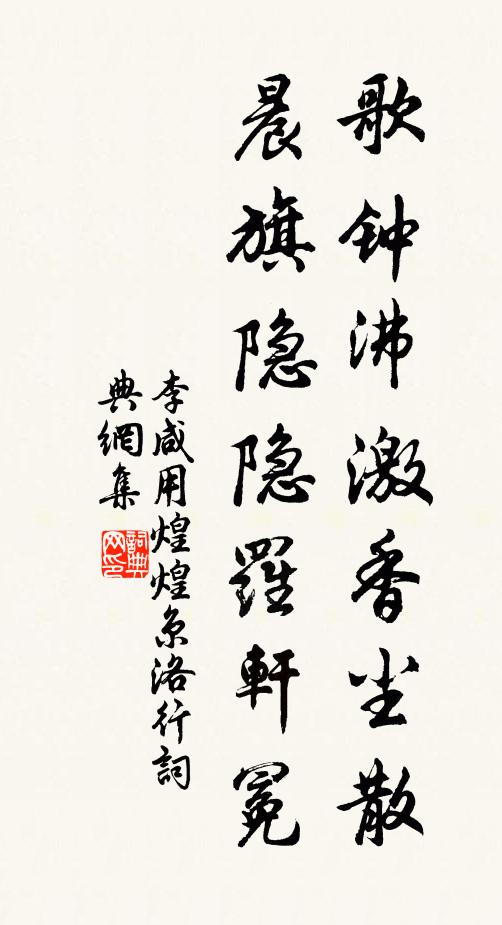 歌钟沸激香尘散
晨旗隐隐羅軒冕
李咸用煌煌京洛行詞
典網集
詞典网印